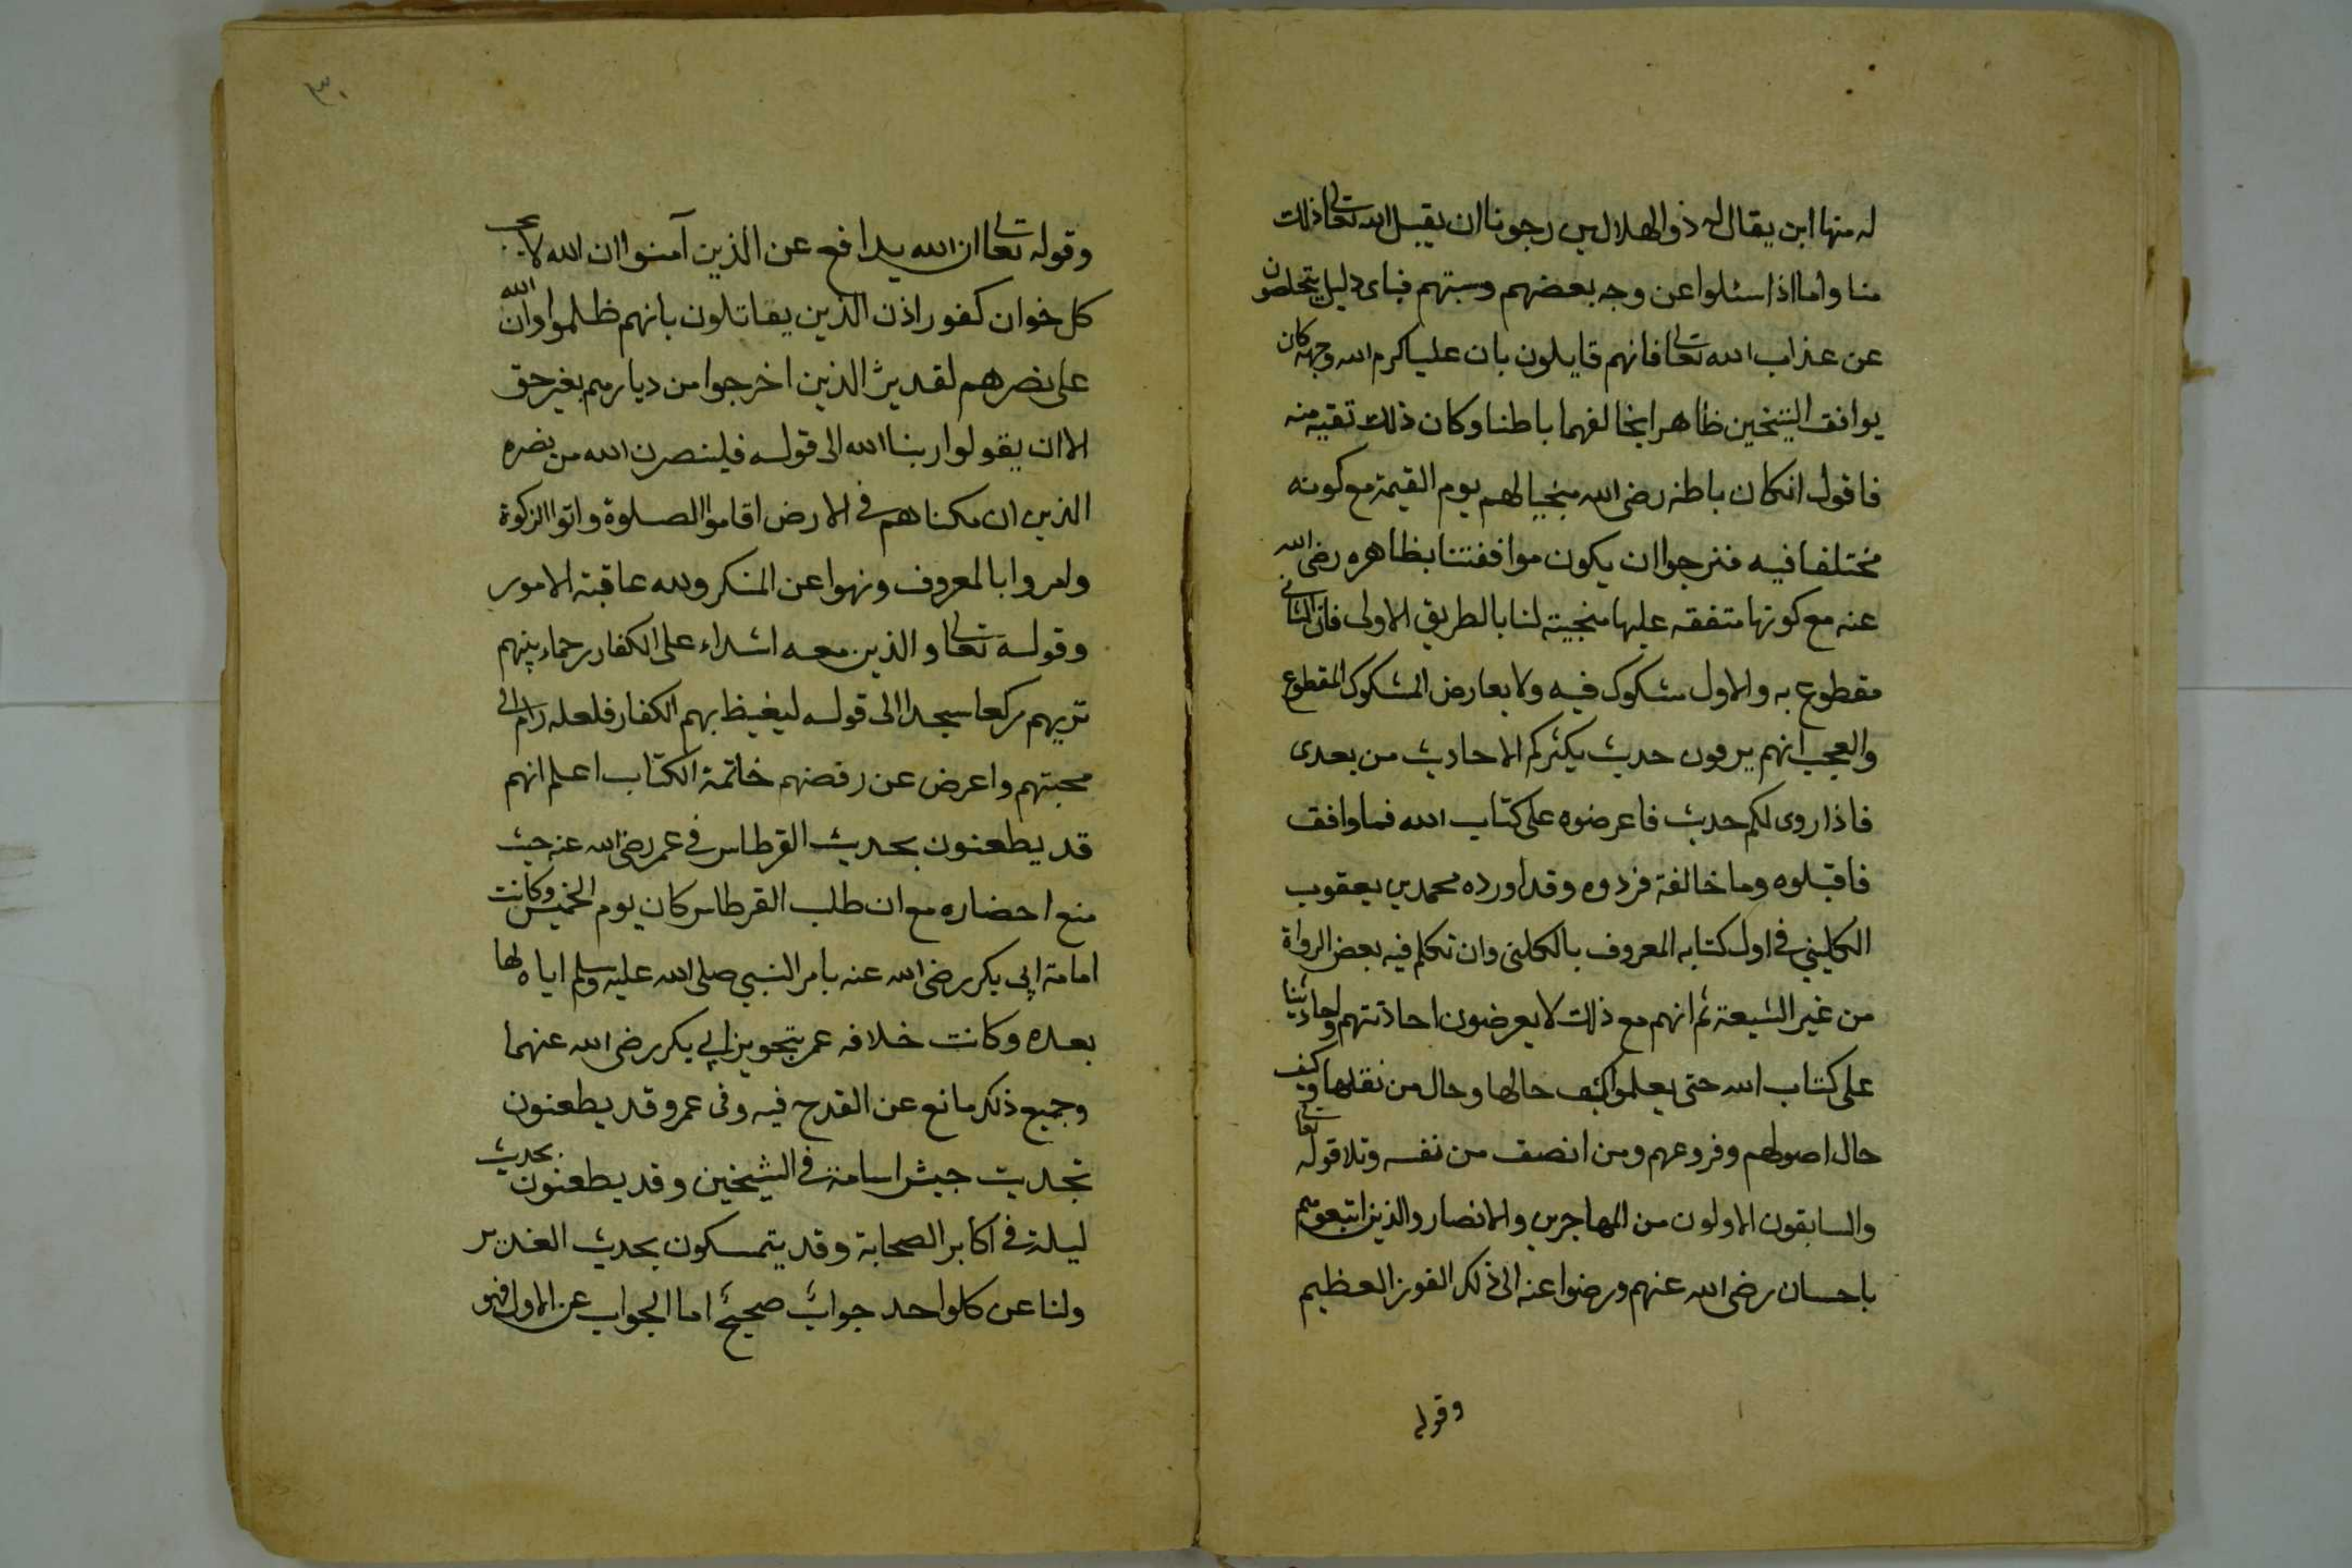 له منها ابن يقال له ذو الهلالين رجونا ان يقبل الله تعالى ذلك
منا واما اذا سئلوا عن وجه بعضهم وسبتهم فباى دليل يتخلصون
عن عذاب الله تعالى فانهم قايلون بان عليا كرم الله وجهه كان
يوافق الشيخين ظاهرا يخالفهما باطنا وكان ذلك تقيه منه
فاقول انكان باطنه رضى الله منجيا لهم يوم القيمة مع كونه
مختلفا فيه فنرجوا ان يكون موافقتنا بظاهره رضى الله
عنه مع كونها متفقه عليها منجيته لنا بالطريق الاولى فان الثانى
مقطوع به والاول مشكوك فيه ولا يعارض المشكوك المقطوع
والعجب انهم يروون حديث يكثركم الاحاديث من بعدى
فاذا روى لكم حديث فاعرضوه على كتاب الله فما وافق
فاقبلوه وما خالفة فردوه وقد اورده محمد بن يعقوب
الكلينى فى اول كتابه المعروف بالكلنى وان تكلم فيه بعض الرواة
من غير الشيعة ثم انهم مع ذلك لا يعرضون احادثتهم واحاديثنا
على كتاب الله حتى يعلموا كيف حالها وحال من نقلها وكيف
حال اصولهم وفروعهم ومن انصف من نفسه وتلا قوله تعالى
والسابقون الاولون من المهاجرين والانصار والذين اتبعوهم
باحسان رضى الله عنهم ورضوا عنه الى ذلك الفوز العظيم
وقوله
٣٠
وقوله تعالى ان الله يدافع عن الذين آمنوا ان الله لا يحب
كل خوان كفور اذن الذين يقاتلون بانهم ظلموا وان الله
على نصرهم لقدير الذين اخرجوا من ديارهم بغير حق
الا ان يقولوا ربنا الله الى قوله فلينصرن الله من نصره
الذين ان مكناهم فى الارض اقاموا الصلوة واتوا الزكوة
وامروا بالمعروف ونهوا عن المنكر ولله عاقبته الامور
وقوله تعالى والذين معه اشداء على الكفار رحماء بينهم
تريهم ركعا سجدا الى قوله ليغيظ بهم الكفار فلعله رام الى
محبتهم واعرض عن رفضهم خاتمة الكتاب اعلم انهم
قد يطعنون بحديث القرطاس فى عمر رضى الله عنه حيث
منع احضاره مع ان طلب القرطاس كان يوم الخميس وكانت
امامة ابى بكر رضى الله عنه بامر النبى صلى الله عليه وسلم اياه لها
بعده وكانت خلافه عمر بتجويز ابى بكر رضى الله عنهما
وجميع ذلك مانع عن القدح فيه وفى عمر وقد يطعنون
بحديث جيش اسامة فى الشيخين وقد يطعنون بحديث
ليلة فى اكابر الصحابة وقد يتمسكون بحديث الغدير
ولنا عن كلواحد جواب صحيح اما الجواب عن الاول فهو